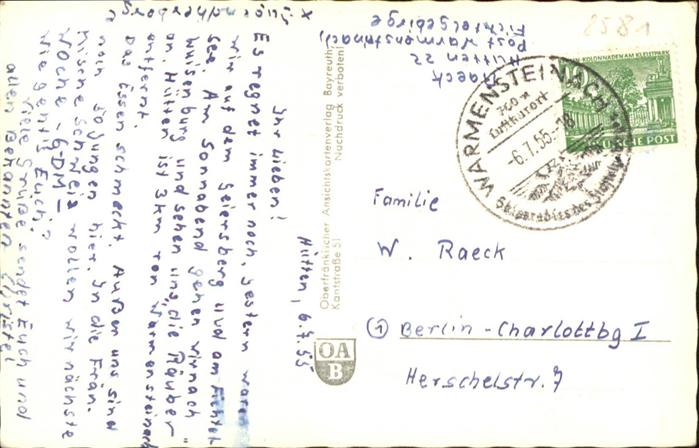 x Jugendherberge
Raeck
Hütten 22
Post Warmensteinach
Fichtelgebirge
Hütten, 6.7.55
Ihr Lieben!
Es regnet immer noch gestern waren
wir auf dem Geiersberg und am Fichtel
see. Am Sonnabend gehen wir nach
Wunsenburg und sehen uns „die Räuber"
an. Hütten ist 3km von Warmensteinach
entfernt.
Das Essen schmeckt. Außer uns sind
noch 20 Jungen hier. In die Frän-
kische Schweiz wollen wir nächste
Woche – 6DM –
Wie geht's Euch?
Viele Grüße sendet Euch und
allen Bekannten
Oberfränkischer Ansichtskartenverlag Bayreuth
Kantstraße 51 Nachdruck verboten!
OA
B
8581
KOLONNADEN AM KLEISTPARK
DEUTSCHE POST
WARMENSTEINACH
760 m
Luftkurort
-6.7.55.-18
Familie
W. Raeck
① Berlin - Charlottbg I
Herschelstr. 7